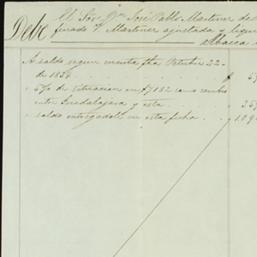 Debe
El Sor. Dn. José Pablo Martinez de
finado Martinez ajustada y liqui
Albacea
A saldo segun cuenta fha Octubre 22
de 1834
5% de situacion en $7152 como cambio
entre Guadalajara y esta
saldo entregadole en esta fecha